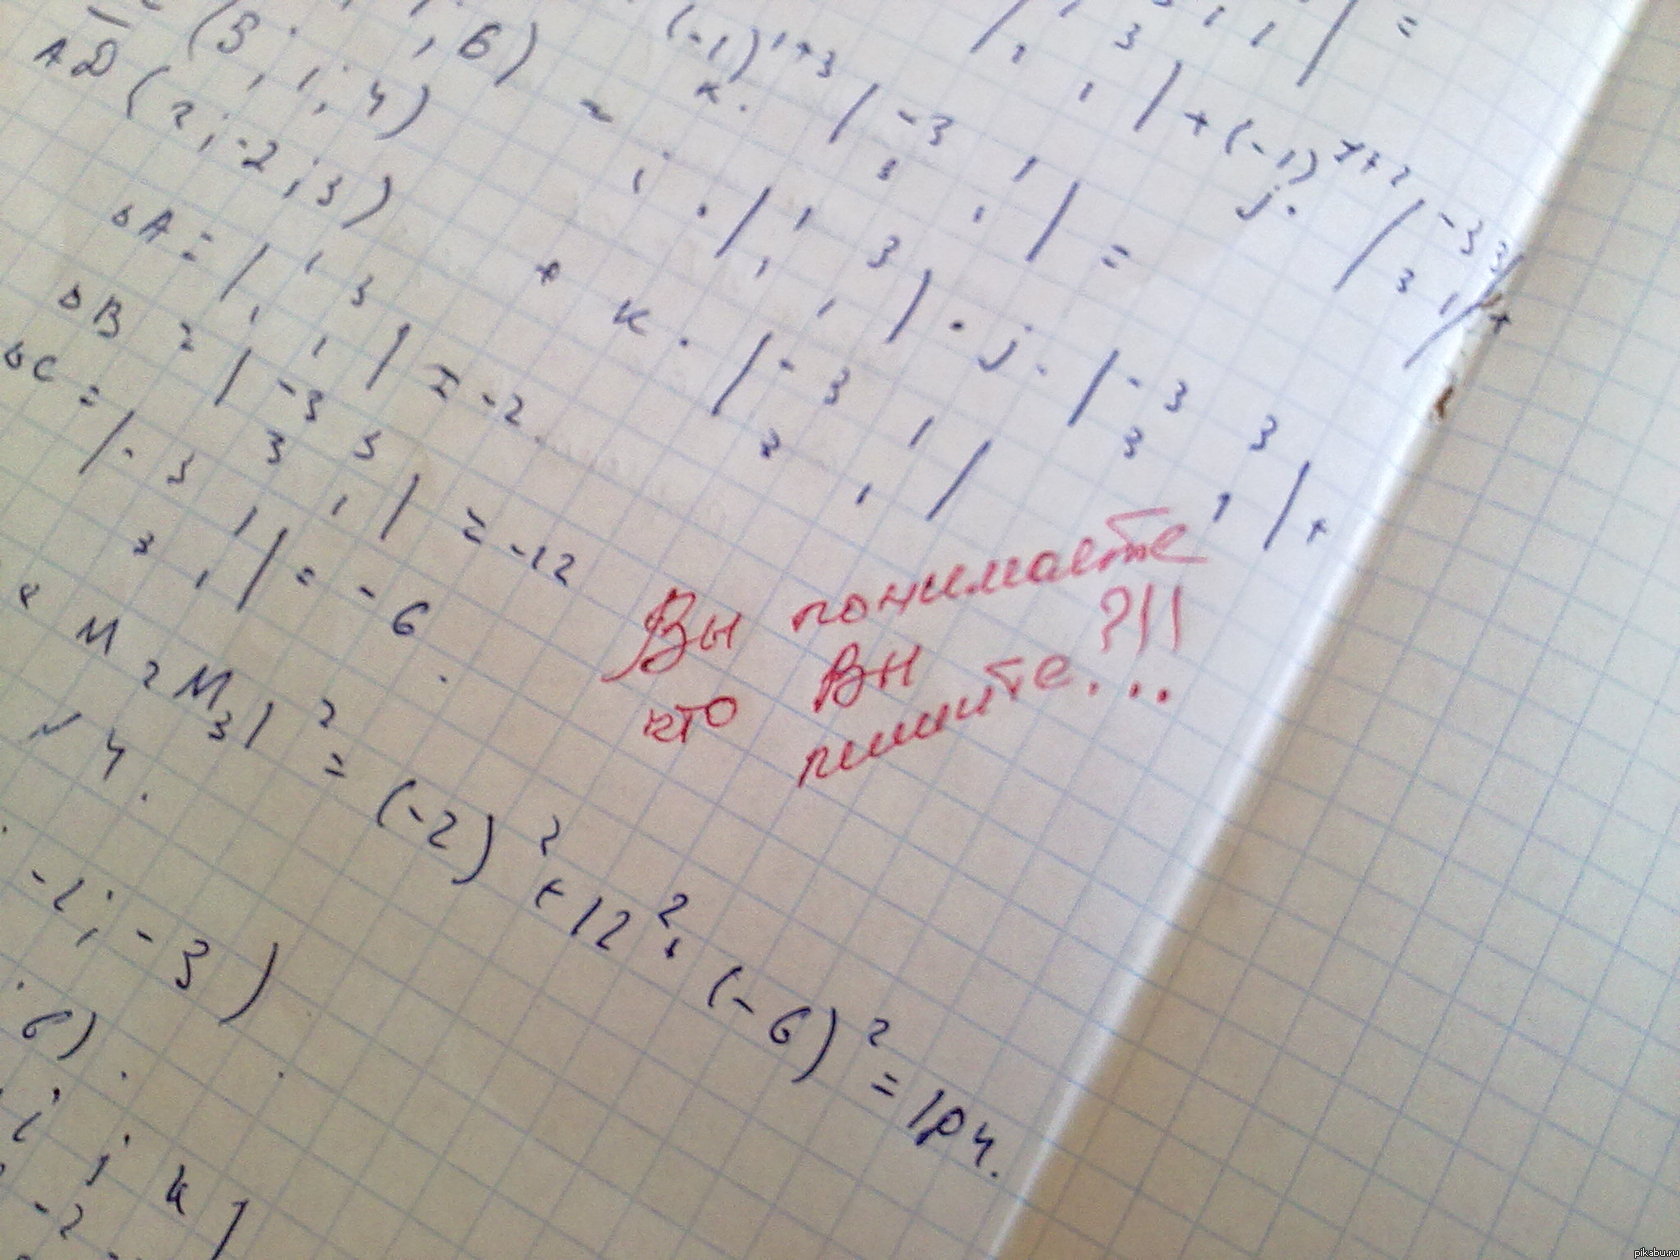 (3 ; 1 ; 4)
AD (2 ; -2 ; 3)
(-1)¹⁺³
k · | -3 1
3 1 | =
+ (-1)¹⁺²
j · | -3 3
3 1 | +
ΔA = | 1 3
1 1 | = -2.
ΔB = | -3 3
3 1 | = -12
ΔC = | -3 1
3 1 | = -6.
i · | 1 3
1 1 | · j · | -3 3
3 1 | +
+ k · | -3 1
3 1 |
Вы понимаете
что Вы
пишите...?!!
M₂M₃|² = (-2)² + 12² + (-6)² = 184.
√ 4.
-1; -3)
6).
i j k
-2
pikabu.ru